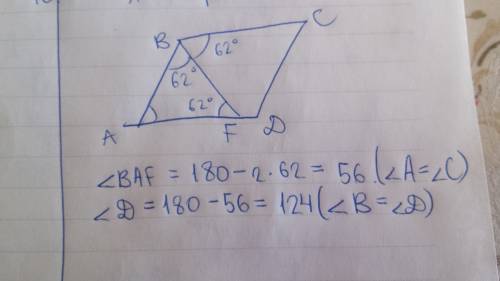 C
B
62°
62°
62°
A
F
D
∠BAF = 180-2·62 = 56.(∠A=∠C)
∠D = 180-56 = 124(∠B=∠D)